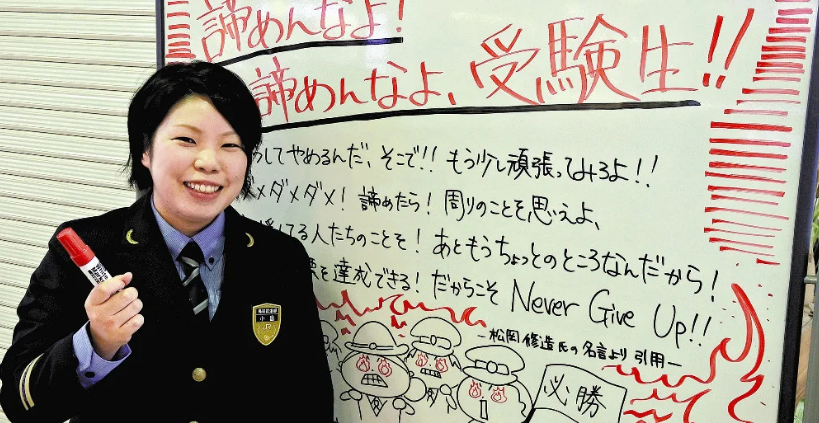 諦めんなよ!
諦めんなよ、受験生!!
してやめるんだ、そこで!! もう少し頑張ってみろよ!!
メダメダメ! 諦めたら! 周りのことを思えよ、
てる人たちのことを! あともうちょっとのところなんだから!
を達成できる! だからこそ Never Give Up!!
－松岡修造氏の名言より引用－
必勝
White